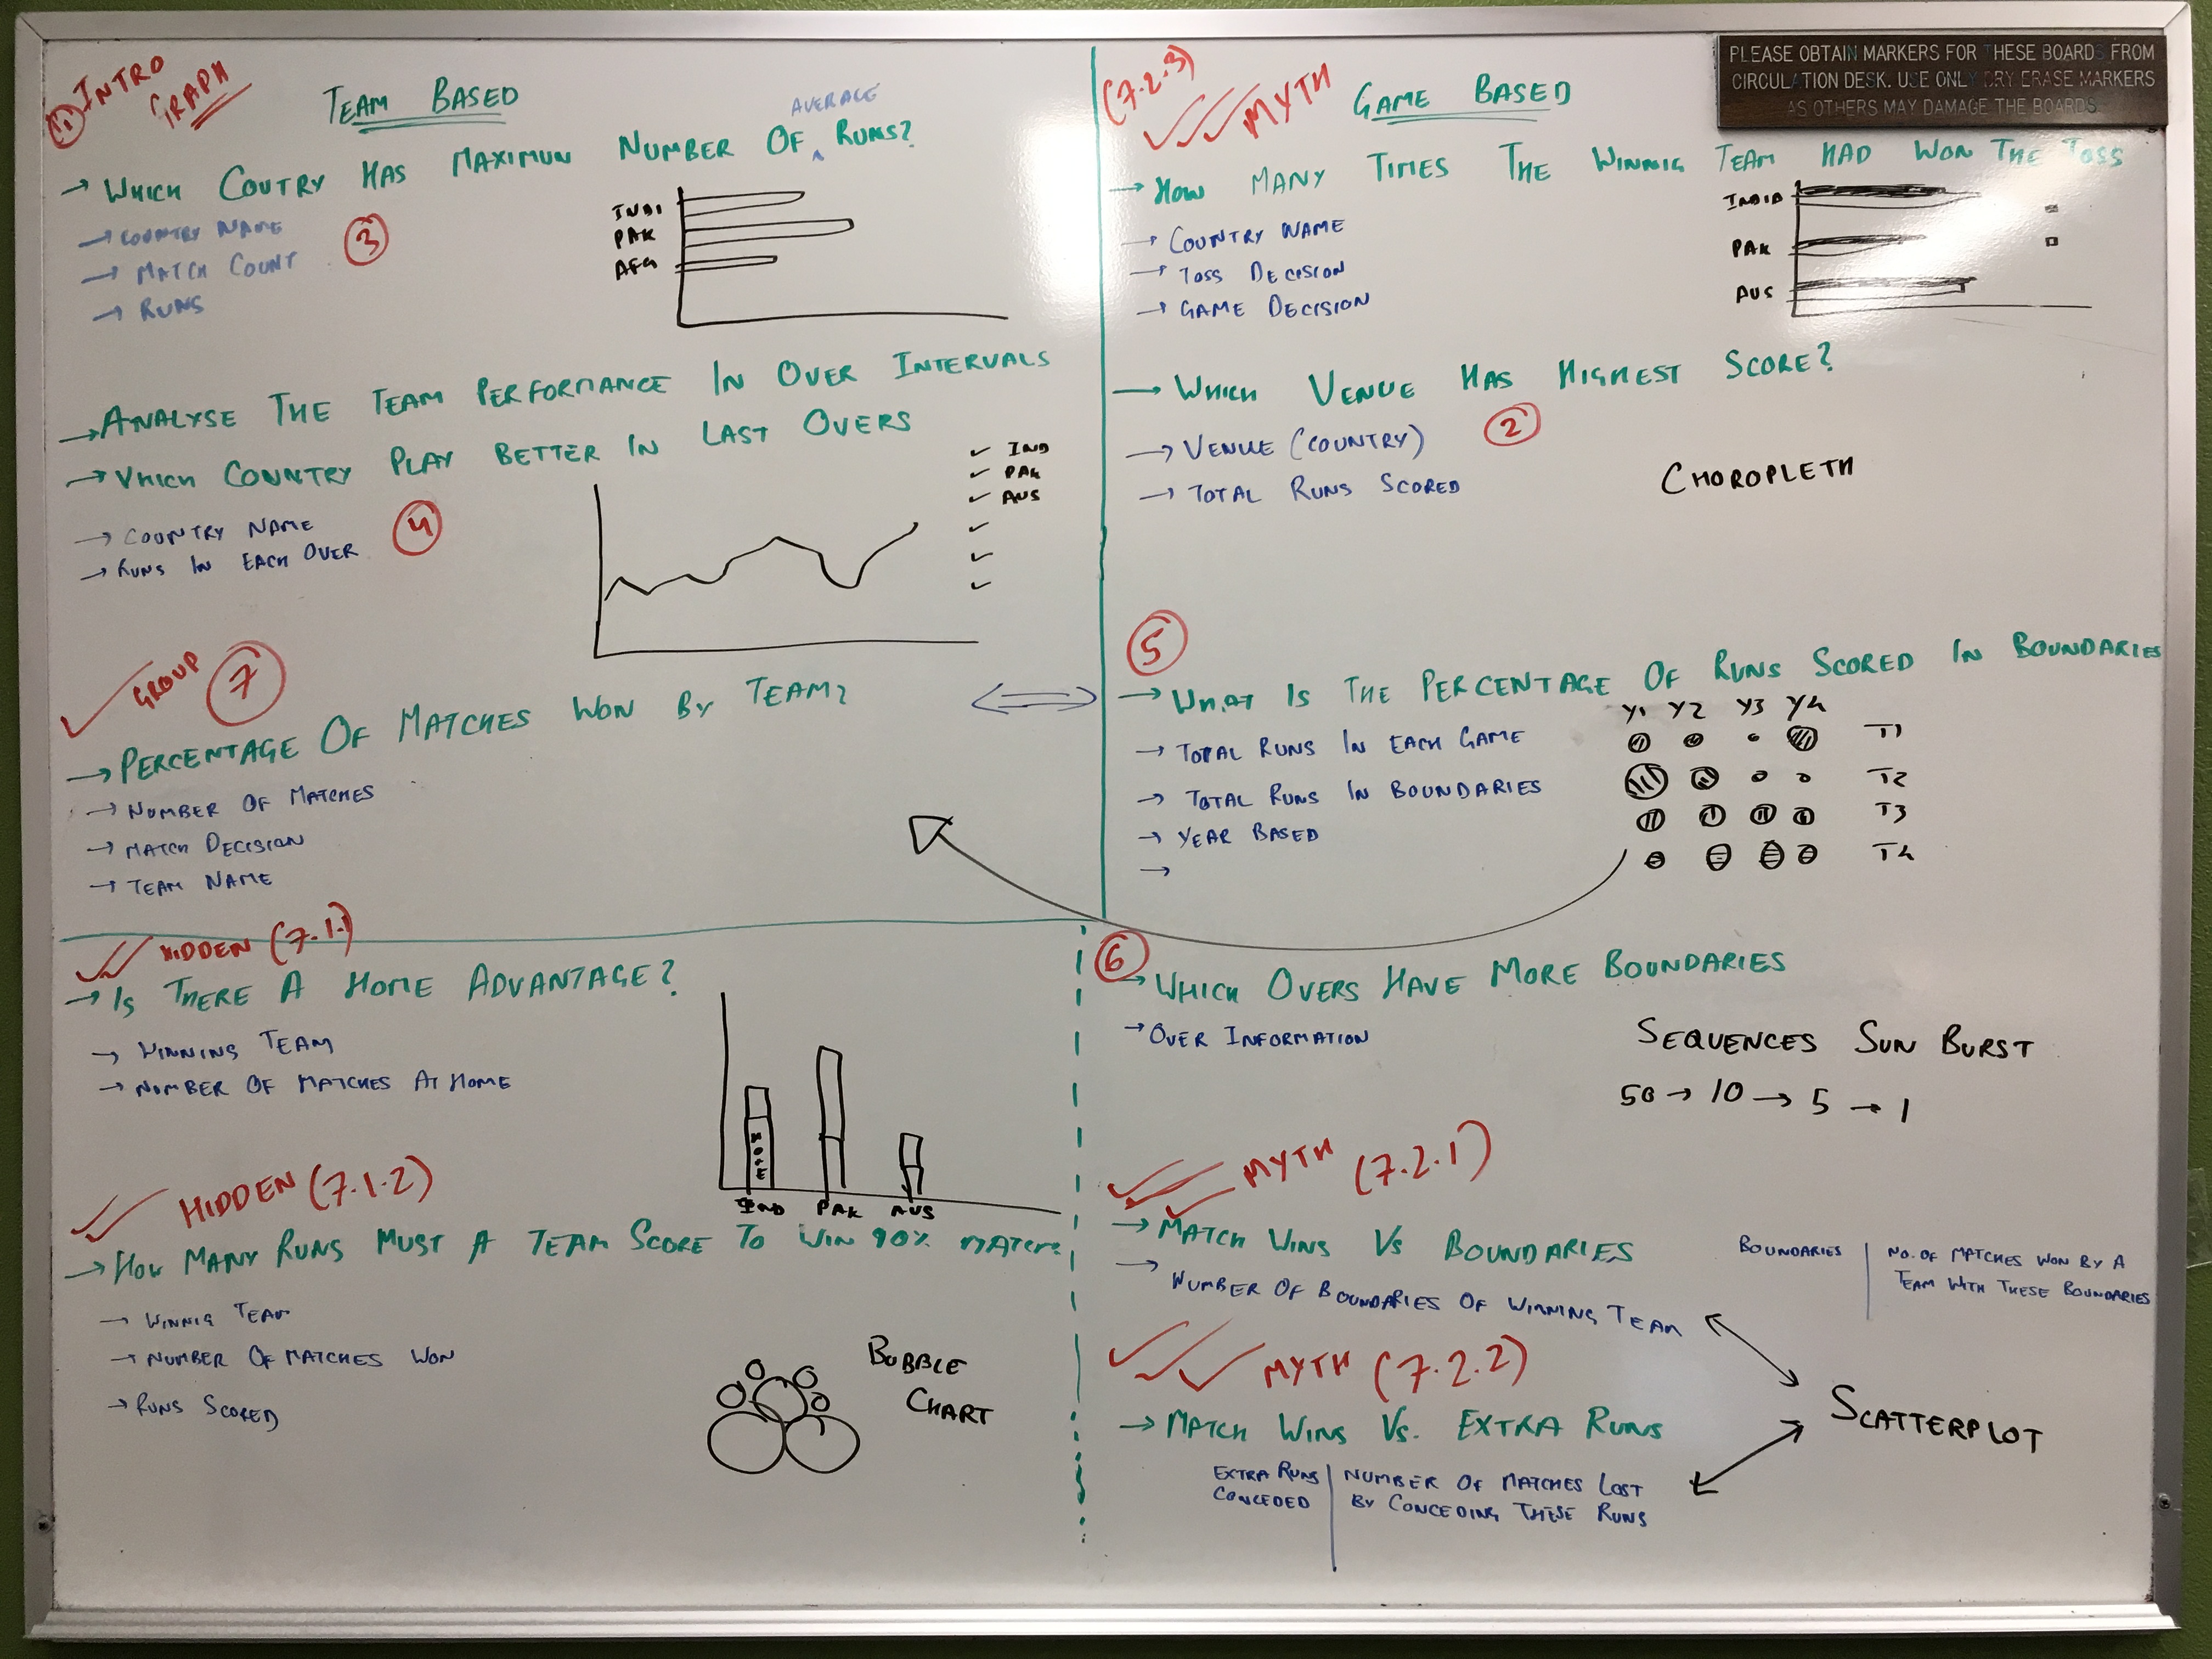 PLEASE OBTAIN MARKERS FOR THESE BOARDS FROM
CIRCULATION DESK. USE ONLY DRY ERASE MARKERS
AS OTHERS MAY DAMAGE THE BOARDS.
(1) INTRO
GRAPH
TEAM BASED
AVERAGE
→ WHICH COUTRY HAS MAXIMUN NUMBER OF ^ RUNS?
→ COUNTRY NAME
→ MATCH COUNT
→ RUNS
3
INDI
PAK
AFG
→ ANALYSE THE TEAM PERFORMANCE IN OVER INTERVALS
→ WHICH COUNTRY PLAY BETTER IN LAST OVERS
→ COUNTRY NAME
→ RUNS IN EACH OVER
4
✓ IND
✓ PAK
✓ AUS
✓
✓
✓
✓ GROUP 7
→ PERCENTAGE OF MATCHES WON BY TEAM?
→ NUMBER OF MATCHES
→ MATCH DECISION
→ TEAM NAME
✓✓ HIDDEN (7.1.1)
→ IS THERE A HOME ADVANTAGE?
→ WINNING TEAM
→ NUMBER OF MATCHES AT HOME
HOME
IND PAK AUS
✓✓ HIDDEN (7.1.2)
→ HOW MANY RUNS MUST A TEAM SCORE TO WIN 90% MATCH?
→ WINNIG TEAM
→ NUMBER OF MATCHES WON
→ RUNS SCORED
BUBBLE
CHART
(7.2.3)
✓✓✓ MYTH
GAME BASED
→ HOW MANY TIMES THE WINNIG TEAM HAD WON THE TOSS
→ COUNTRY NAME
→ TOSS DECISION
→ GAME DECISION
INDIA
PAK
AUS
→ WHICH VENUE HAS HIGHEST SCORE?
→ VENUE (COUNTRY)
→ TOTAL RUNS SCORED
2
CHOROPLETH
5
→ WHAT IS THE PERCENTAGE OF RUNS SCORED IN BOUNDARIES
→ TOTAL RUNS IN EACH GAME
→ TOTAL RUNS IN BOUNDARIES
→ YEAR BASED
→
Y1 Y2 Y3 Y4
T1
T2
T3
T4
6
→ WHICH OVERS HAVE MORE BOUNDARIES
→ OVER INFORMATION
SEQUENCES SUN BURST
50 → 10 → 5 → 1
✓✓✓ MYTH (7.2.1)
→ MATCH WINS VS BOUNDARIES
→ NUMBER OF BOUNDARIES OF WINNING TEAM
BOUNDARIES | NO. OF MATCHES WON BY A
TEAM WITH THESE BOUNDARIES
✓✓✓ MYTH (7.2.2)
→ MATCH WINS VS. EXTRA RUNS
EXTRA RUNS | NUMBER OF MATCHES LOST
CONCEDED | BY CONCEDING THESE RUNS
SCATTERPLOT